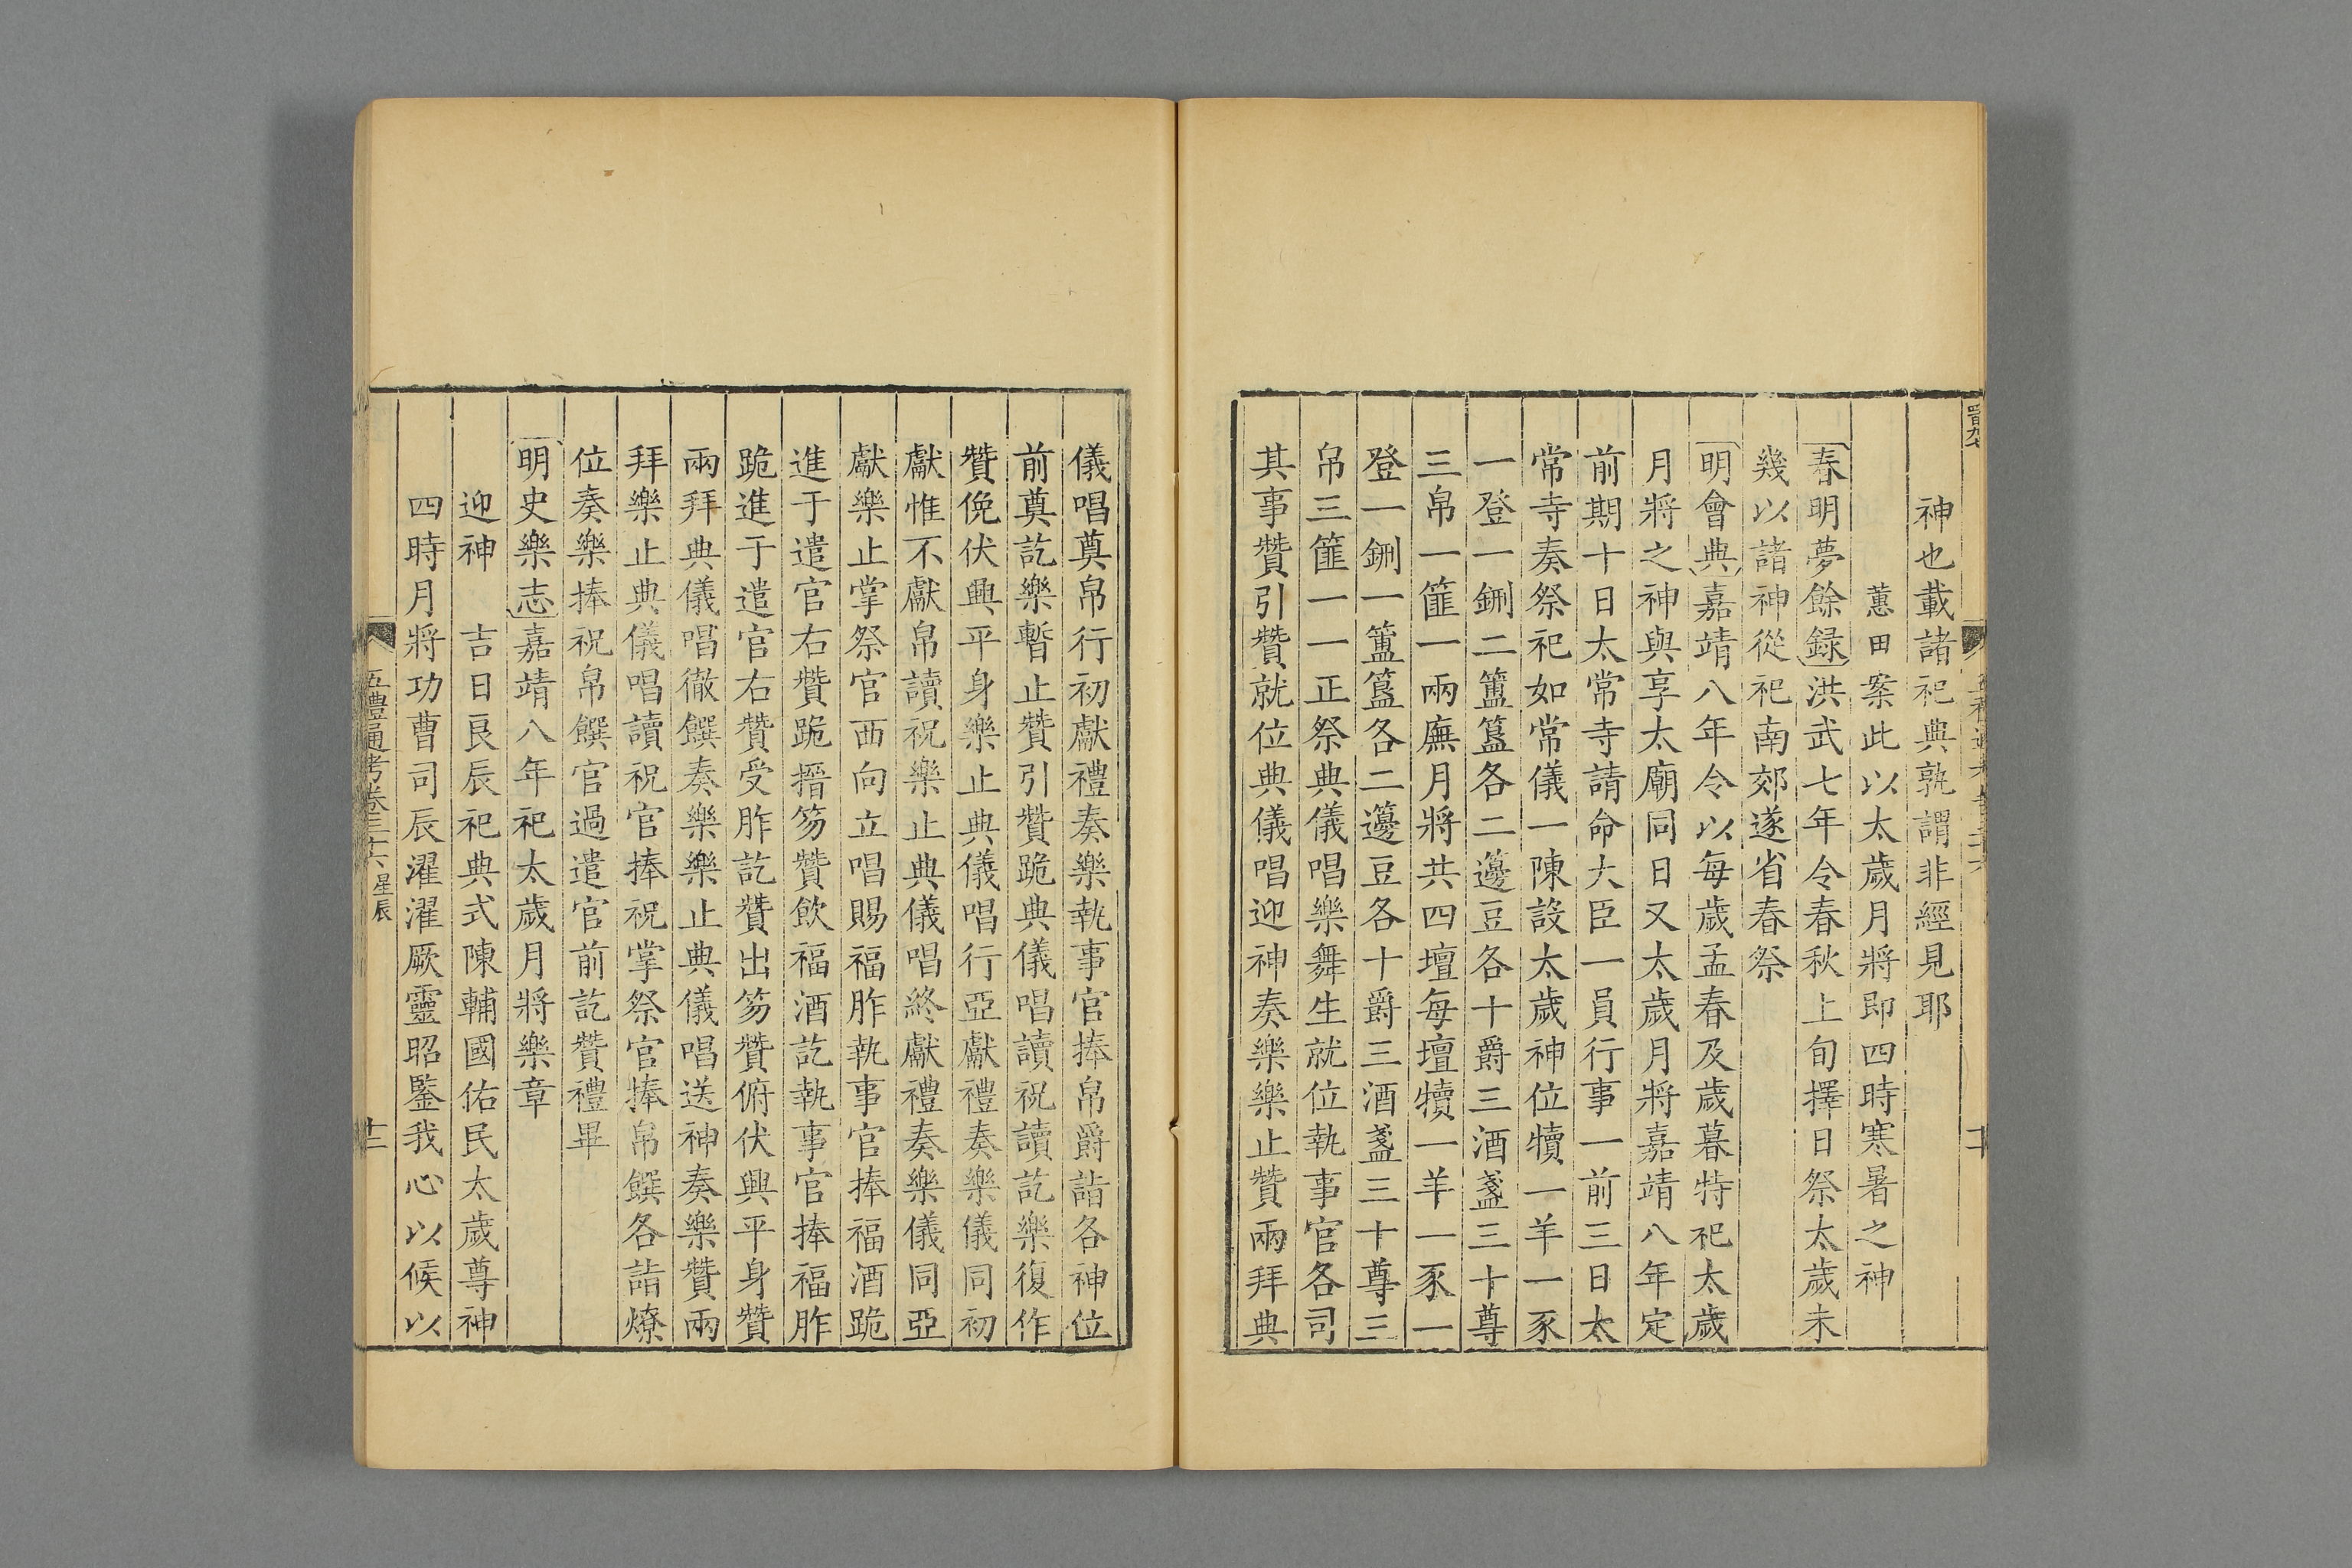 神也載諸祀典孰謂非經見耶
蕙田案此以太歲月將即四時寒暑之神
春明夢餘録洪武七年令春秋上旬擇日祭太歲未
幾以諸神從祀南郊遂省春祭
明會典嘉靖八年令以每歲孟春及歲暮特祀太歲
月將之神與享太廟同日又太歲月將嘉靖八年定
前期十日太常寺請命大臣一員行事一前三日太
常寺奏祭祀如常儀一陳設太歲神位犢一羊一豕
一登一鉶二簠簋各二籩豆各十爵三酒盞三十尊
三帛一篚一兩廡月將共四壇每壇犢一羊一豕一
登一鉶一簠簋各二籩豆各十爵三酒盞三十尊三
帛三篚一一正祭典儀唱樂舞生就位執事官各司
其事贊引贊就位典儀唱迎神奏樂樂止贊兩拜典
儀唱奠帛行初獻禮奏樂執事官捧帛爵詣各神位
前奠訖樂暫止贊引贊跪典儀唱讀祝讀訖樂復作
贊俛伏興平身樂止典儀唱行亞獻禮奏樂儀同初
獻惟不獻帛讀祝樂止典儀唱終獻禮奏樂儀同亞
獻樂止掌祭官西向立唱賜福胙執事官捧福酒跪
進于遣官右贊跪搢笏贊飲福酒訖執事官捧福胙
跪進于遣官右贊受胙訖贊出笏贊俯伏興平身贊
兩拜典儀唱徹饌奏樂樂止典儀唱送神奏樂贊兩
拜樂止典儀唱讀祝官捧祝掌祭官捧帛饌各詣燎
位奏樂捧祝帛饌官過遣官前訖贊禮畢
明史樂志嘉靖八年祀太歲月將樂章
迎神　吉日良辰祀典式陳輔國佑民太歲尊神
四時月將功曹司辰濯濯厥靈昭鑒我心以候以
五禮通考卷三十六星辰　十二